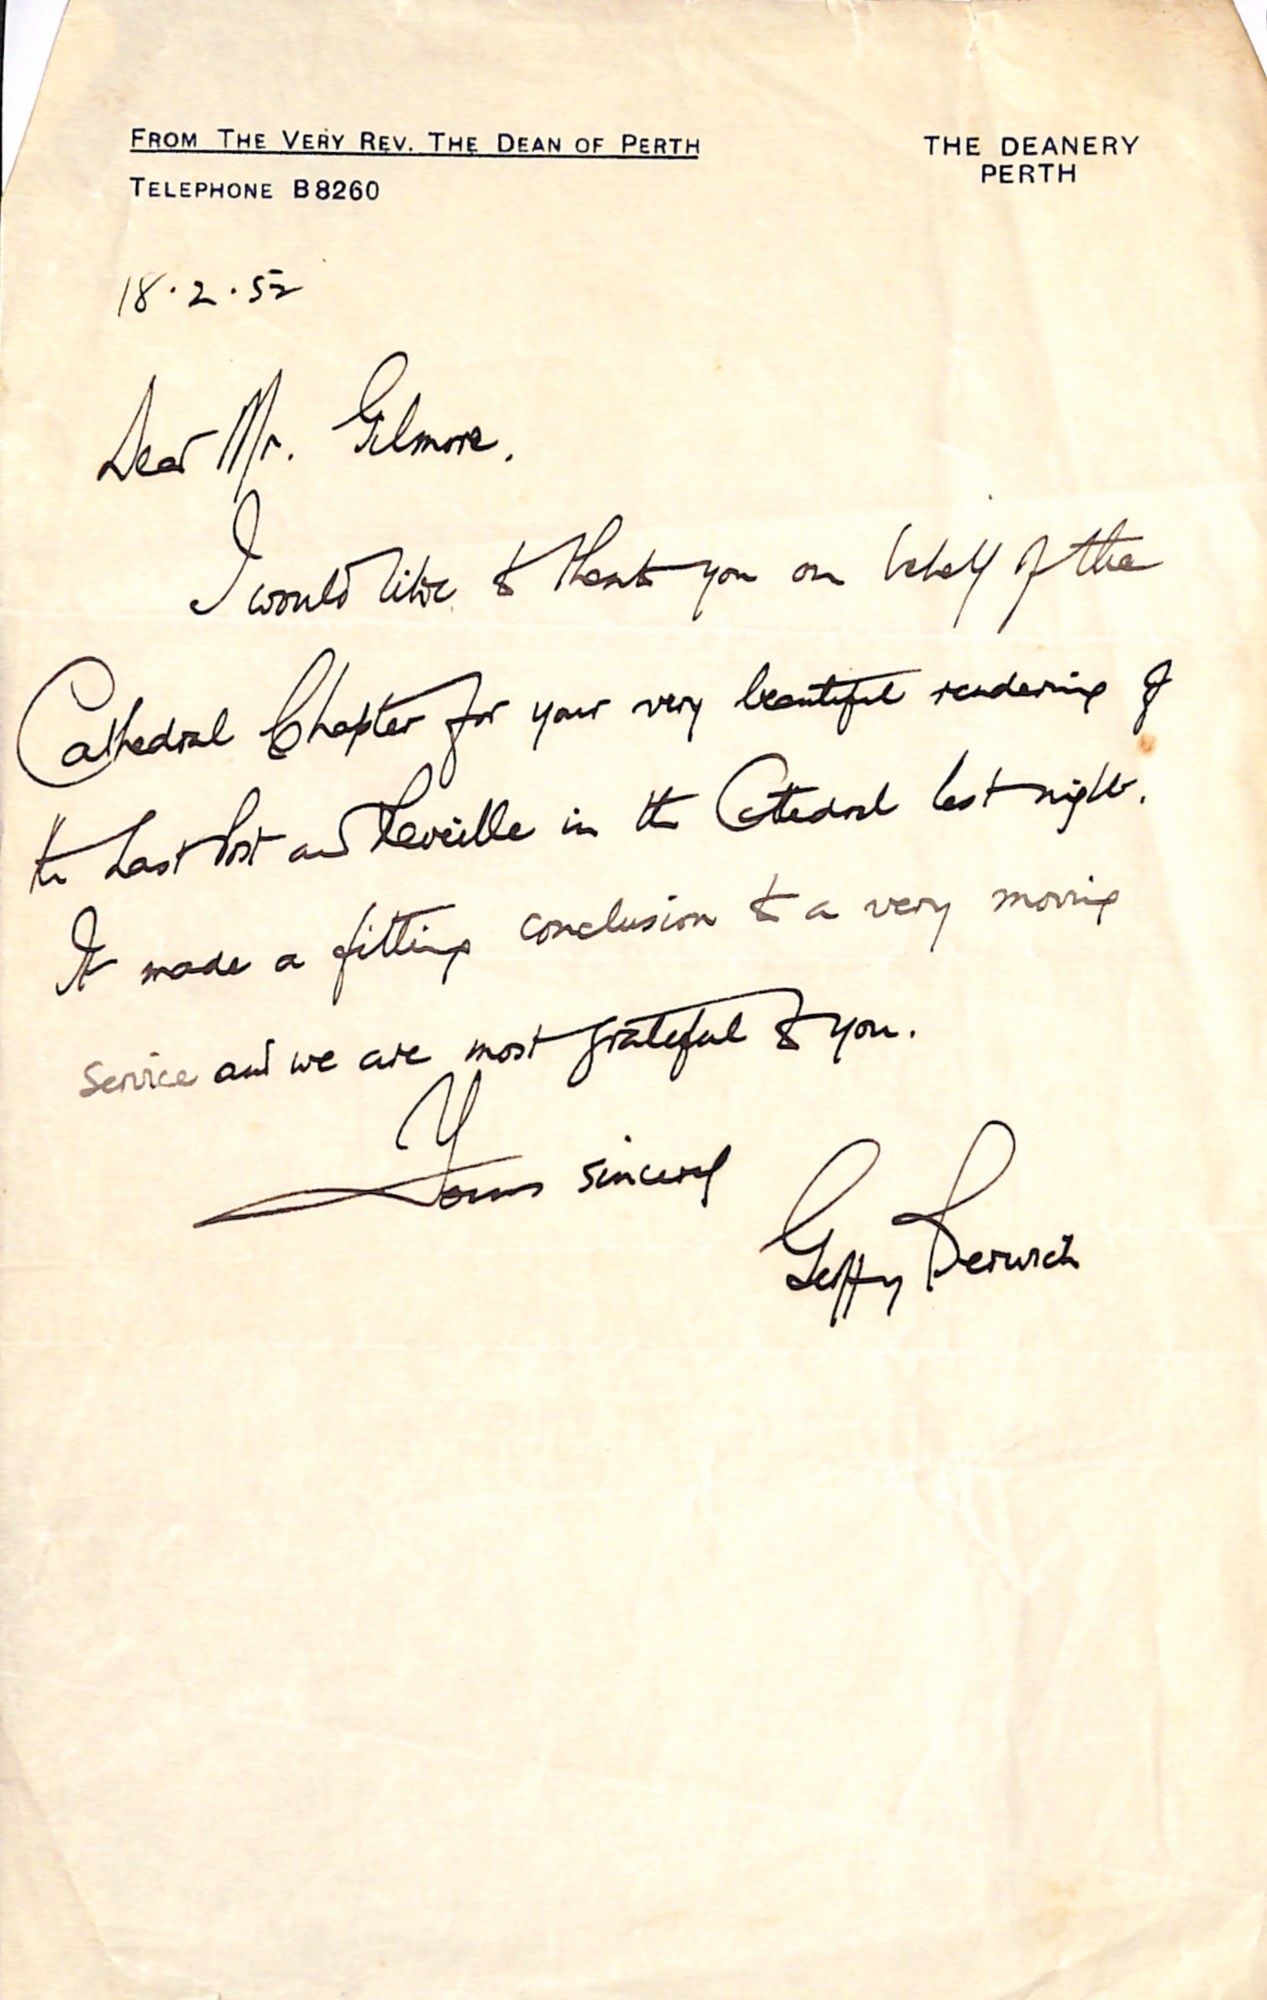 FROM THE VERY REV. THE DEAN OF PERTH
TELEPHONE B8260
THE DEANERY
PERTH
18.2.52
Dear Mr. Gilmore.
I would like to thank you on behalf of the
Cathedral Chapter for your very beautiful rendering of
the Last Post and Reveille in the Cathedral last night.
It made a fitting conclusion to a very moving
service and we are most grateful to you.
Yours sincerely
Geoffrey Berwick